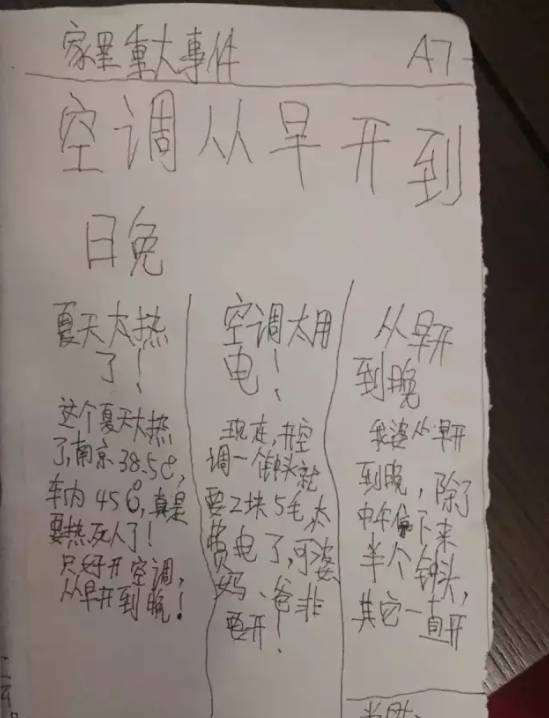 家里重大事件
A7
空调从早开到
日免
夏天太热
了！
这个夏天太热
了，南京38.5℃，
车内45℃，真是
要热死人了！
只好开空调，
从早开到晚！
空调太用
电！
现在，开空
调一个钟头就
要2块5毛，太
费电了，可婆
妈、爸非
要开！
从早开
到晚
我婆从早开
到晚，除了
中午停下来
半个钟头，
其它一直开